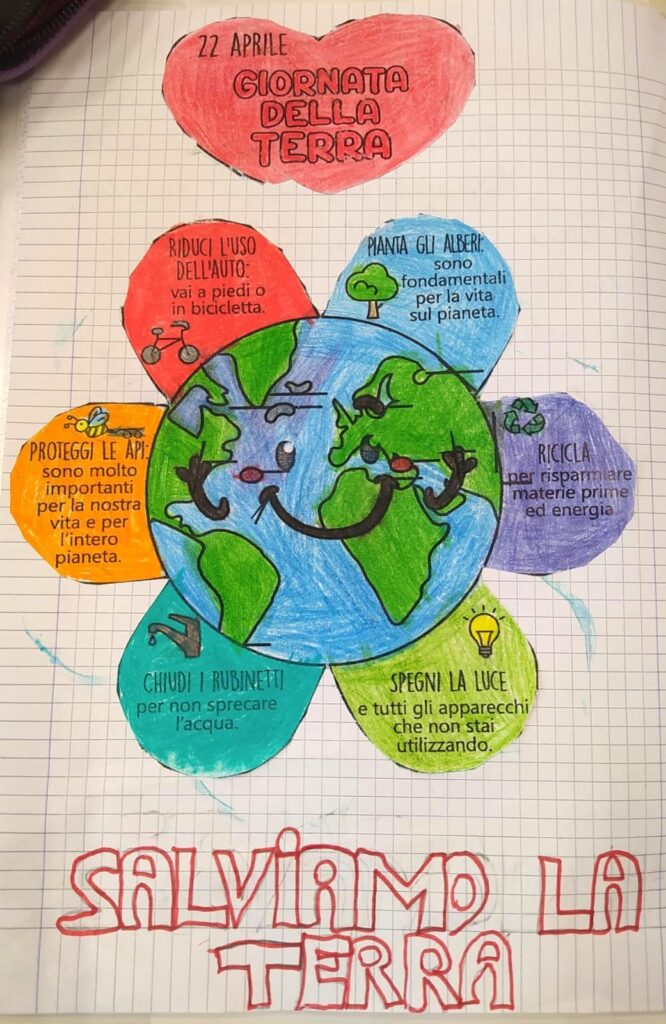 22 APRILE
GIORNATA
DELLA
TERRA
RIDUCI L'USO
DELL'AUTO:
vai a piedi o
in bicicletta.
PIANTA GLI ALBERI:
sono
fondamentali
per la vita
sul pianeta.
PROTEGGI LE API:
sono molto
importanti
per la nostra
vita e per
l'intero
pianeta.
RICICLA
per risparmiare
materie prime
ed energia.
CHIUDI I RUBINETTI
per non sprecare
l'acqua.
SPEGNI LA LUCE
e tutti gli apparecchi
che non stai
utilizzando.
SALVIAMO LA
TERRA